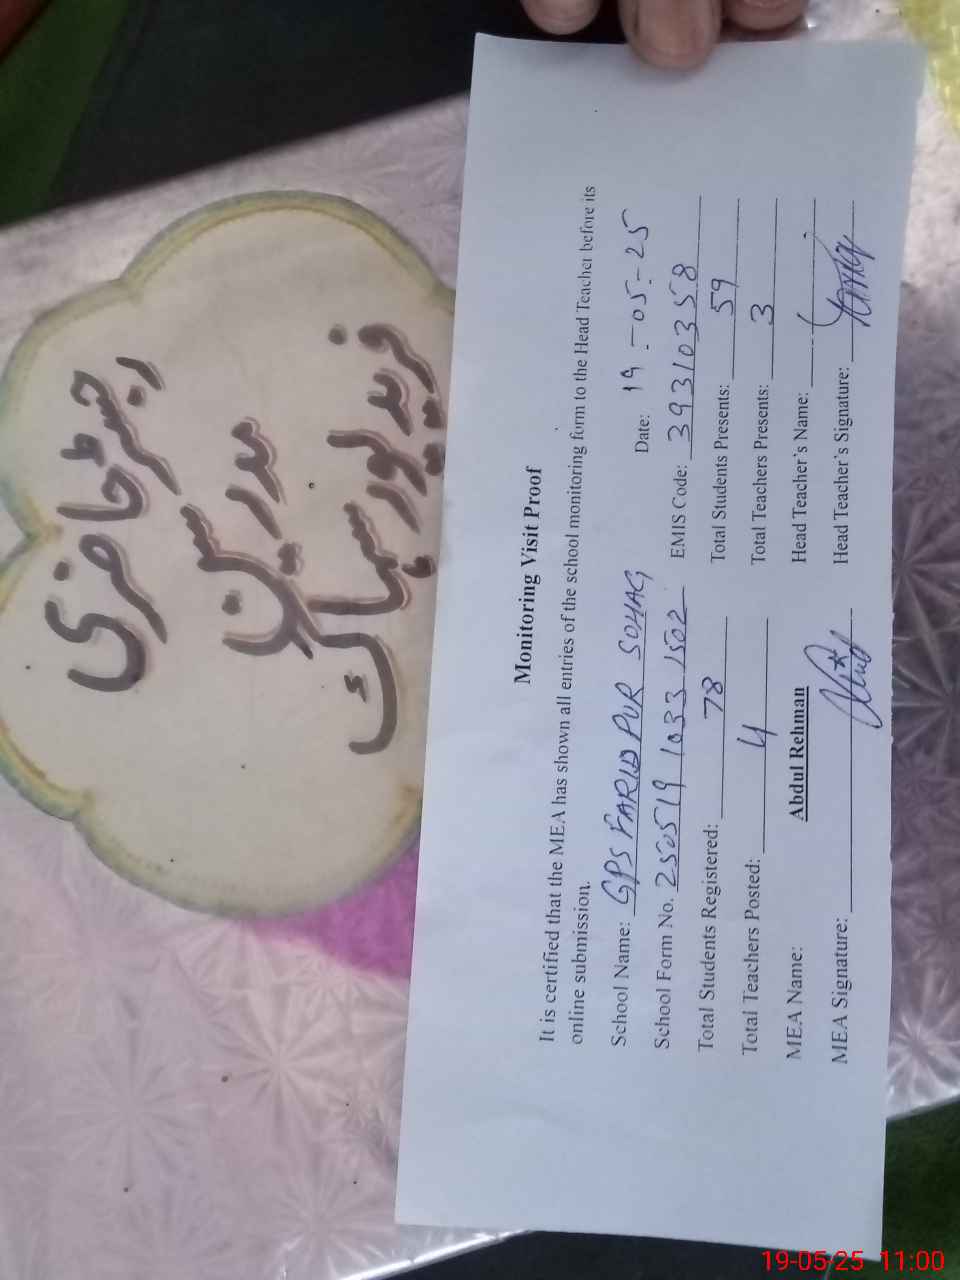 رجسٹر حاضری
مدرسین
فرید پور سہاگ
Monitoring Visit Proof
It is certified that the MEA has shown all entries of the school monitoring form to the Head Teacher before its
online submission.
Date: 19-05-25
School Name: GPS FARID PUR SOHAG
School Form No. 250519 1033 1502 EMIS Code: 39310358
Total Students Registered: 78 Total Students Presents: 59
Total Teachers Posted: 4 Total Teachers Presents: 3
MEA Name: Abdul Rehman Head Teacher's Name:
MEA Signature: Head Teacher's Signature:
19-05-25 11:00